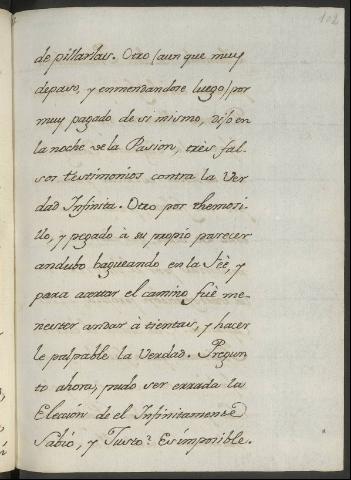 102
de pillarlas. Otro /aun que muy
depaso, y enmendandose luego/ por
muy pagado de si mismo, dijo en
la noche de la Pasion, tres fal-
sos testimonios contra la Ver
dad Infinita. Otro por themosi-
llo, y pegado à su propio parecer
andubo bagueando en la Feè, y
para acertar el camino fuè me-
nester andar à tientas, y hacer
le palpable la Verdad. Pregun
to ahora, pudo ser errada la
Elección de el Infinitamente
Sabio, y Justo? Es imposible.